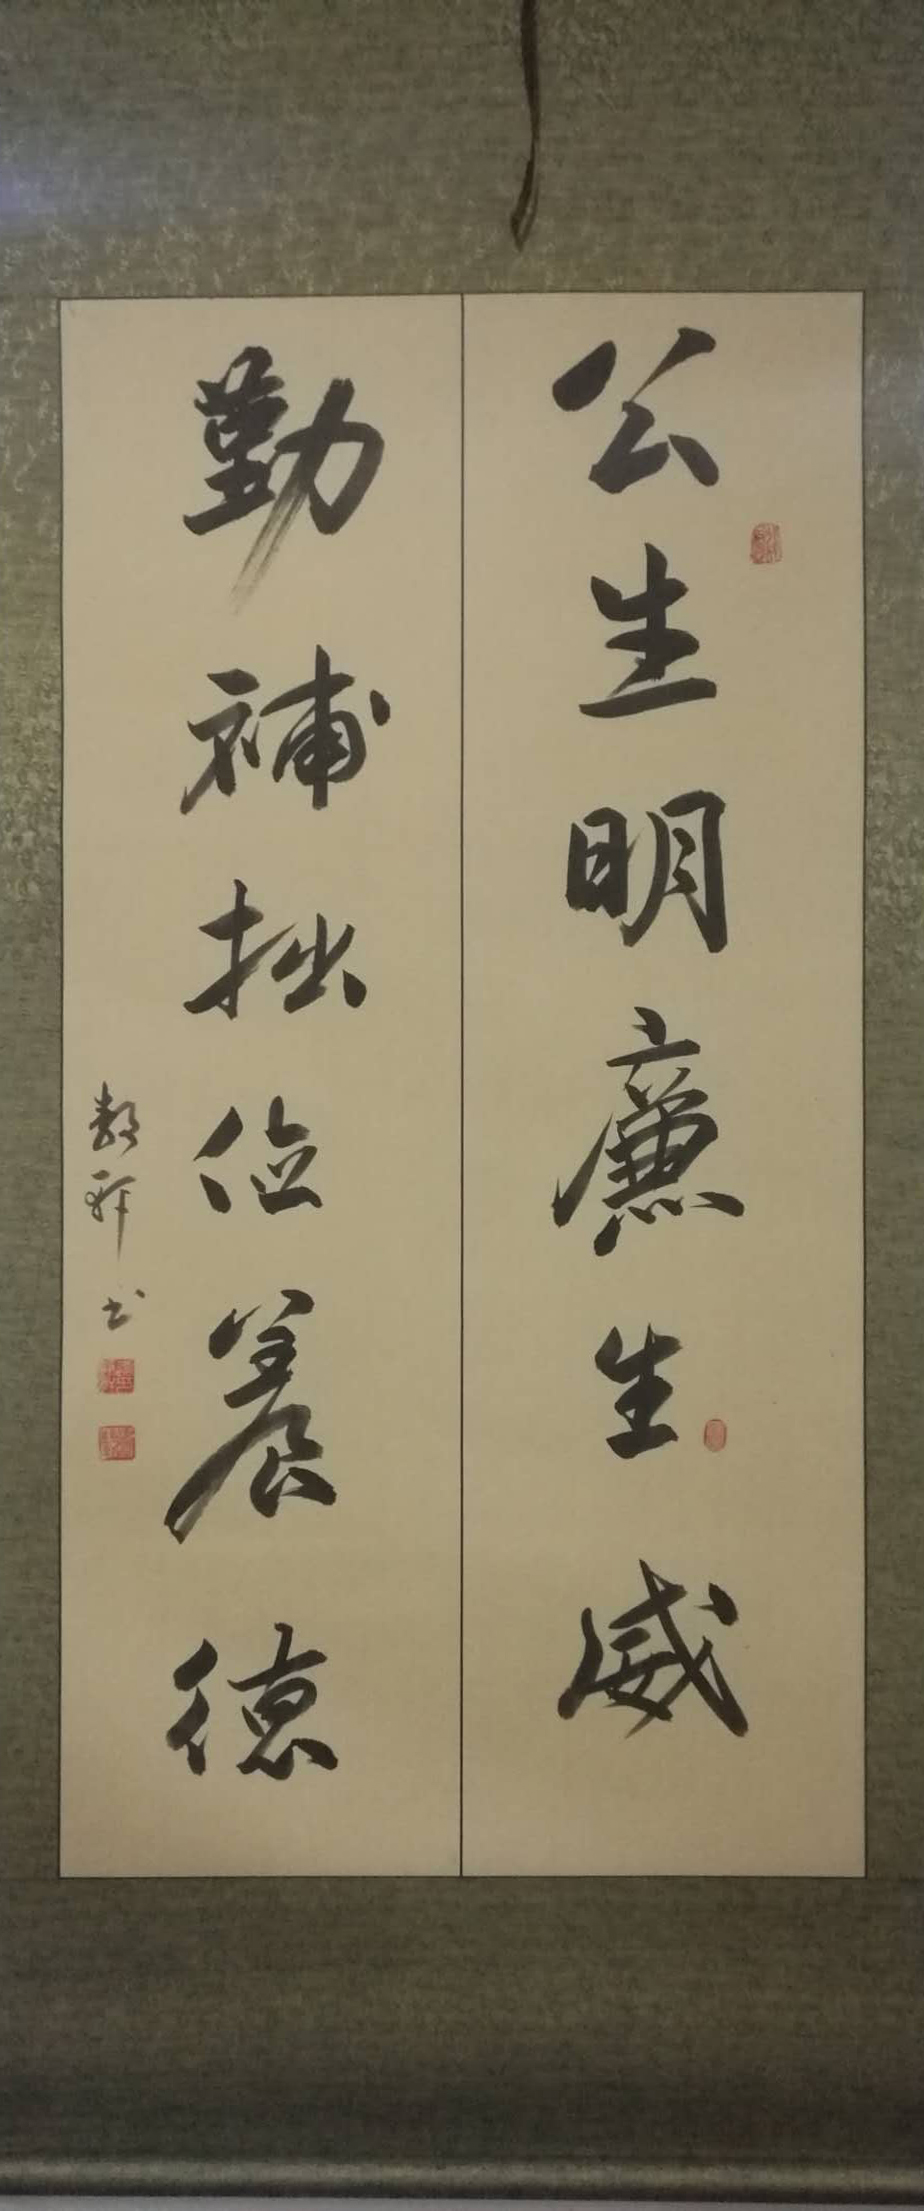 公生明廉生威
勤補拙俭養德
書